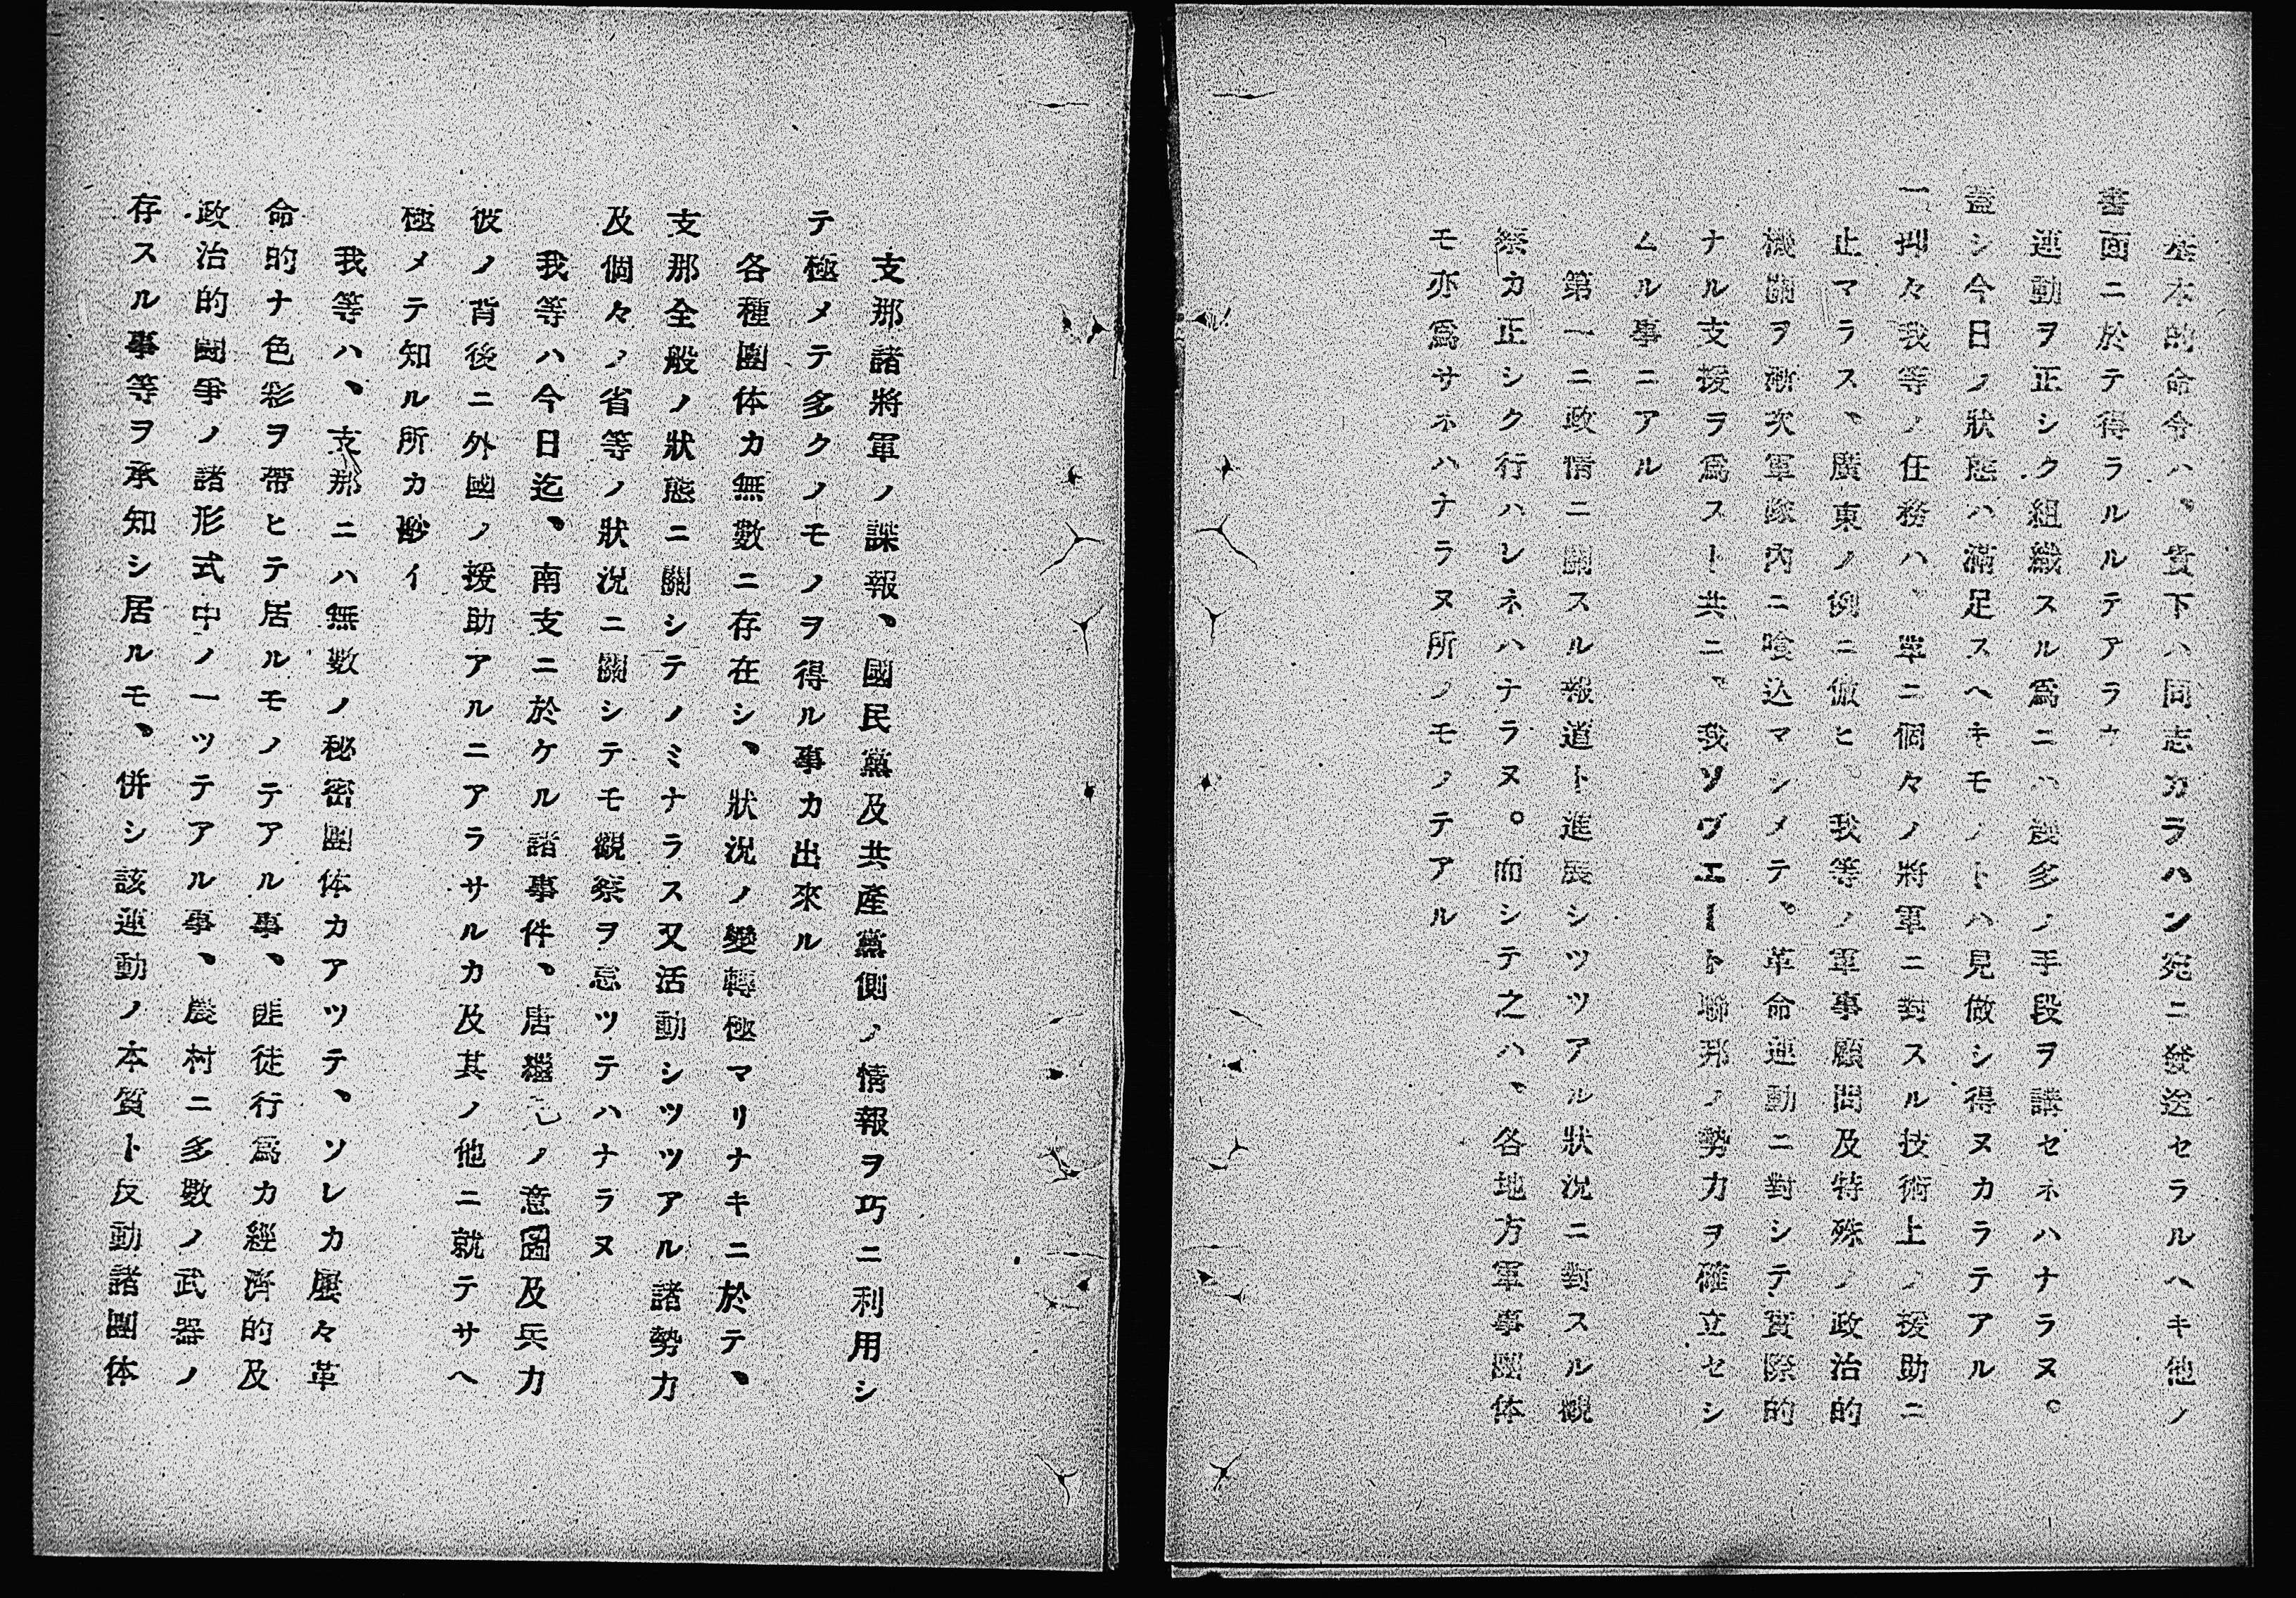 基本的命令ハ、貴下ハ同志カラハン宛ニ發送セラルヘキ他ノ
書面ニ於テ得ラルルテアラウ
運動ヲ正シク組織スル爲ニハ幾多ノ手段ヲ講セネハナラヌ。
蓋シ今日ノ狀態ハ滿足スヘキモノトハ見做シ得ヌカラテアル
一、抑々我等ノ任務ハ、單ニ個々ノ將軍ニ對スル技術上ノ援助ニ
止マラス、廣東ノ例ニ倣ヒ。我等ノ軍事顧問及特殊ノ政治的
機關ヲ漸次軍隊內ニ喰込マシメテ、革命運動ニ對シテ實際的
ナル支援ヲ爲スト共ニ、我ソヴエート聯邦ノ勢力ヲ確立セシ
ムル事ニアル
第一ニ政情ニ關スル報道ト進展シツツアル狀況ニ對スル觀
察カ正シク行ハレネハナラヌ。而シテ之ハ、各地方軍事團体
モ亦爲サネハナラヌ所ノモノテアル
支那諸將軍ノ諜報、國民黨及共產黨側ノ情報ヲ巧ニ利用シ
テ極メテ多クノモノヲ得ル事カ出來ル
各種團体カ無數ニ存在シ、狀況ノ變轉極マリナキニ於テ、
支那全般ノ狀態ニ關シテノミナラス又活動シツツアル諸勢力
及個々ノ省等ノ狀況ニ關シテモ觀察ヲ怠ツテハナラヌ
我等ハ今日迄、南支ニ於ケル諸事件、唐繼ノ意圖及兵力
彼ノ背後ニ外國ノ援助アルニアラサルカ及其ノ他ニ就テサヘ
極メテ知ル所カ尠イ
我等ハ、支那ニハ無數ノ秘密團体カアツテ、ソレカ屢々革
命的ナ色彩ヲ帶ヒテ居ルモノテアル事、匪徒行爲カ經濟的及
政治的鬪爭ノ諸形式中ノ一ツテアル事、農村ニ多數ノ武器ノ
存スル事等ヲ承知シ居ルモ、併シ該運動ノ本質ト反動諸團体